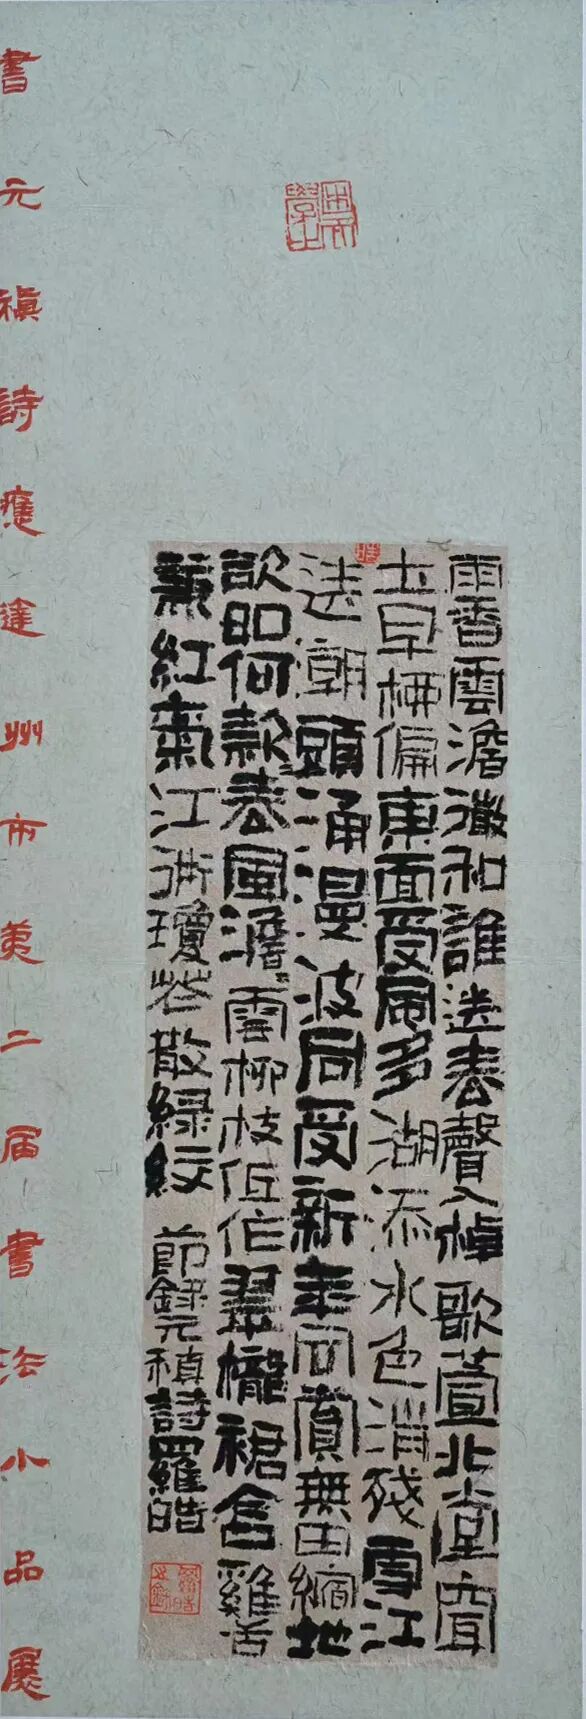 困而學之
雨香雲澹微和誰送春聲入棹歌萱北堂穿
土早桺偏東面受風多湖添水色消殘雪江
送潮頭涌漫波同受新年同賞無由縮地
欲如何款春風澹雲柳枝低作翠櫳裙含雞舌
兼紅氣江弄瓊花散綠紋 節錄元稹詩羅皓
書元稹詩應達州市第二届書法小品展